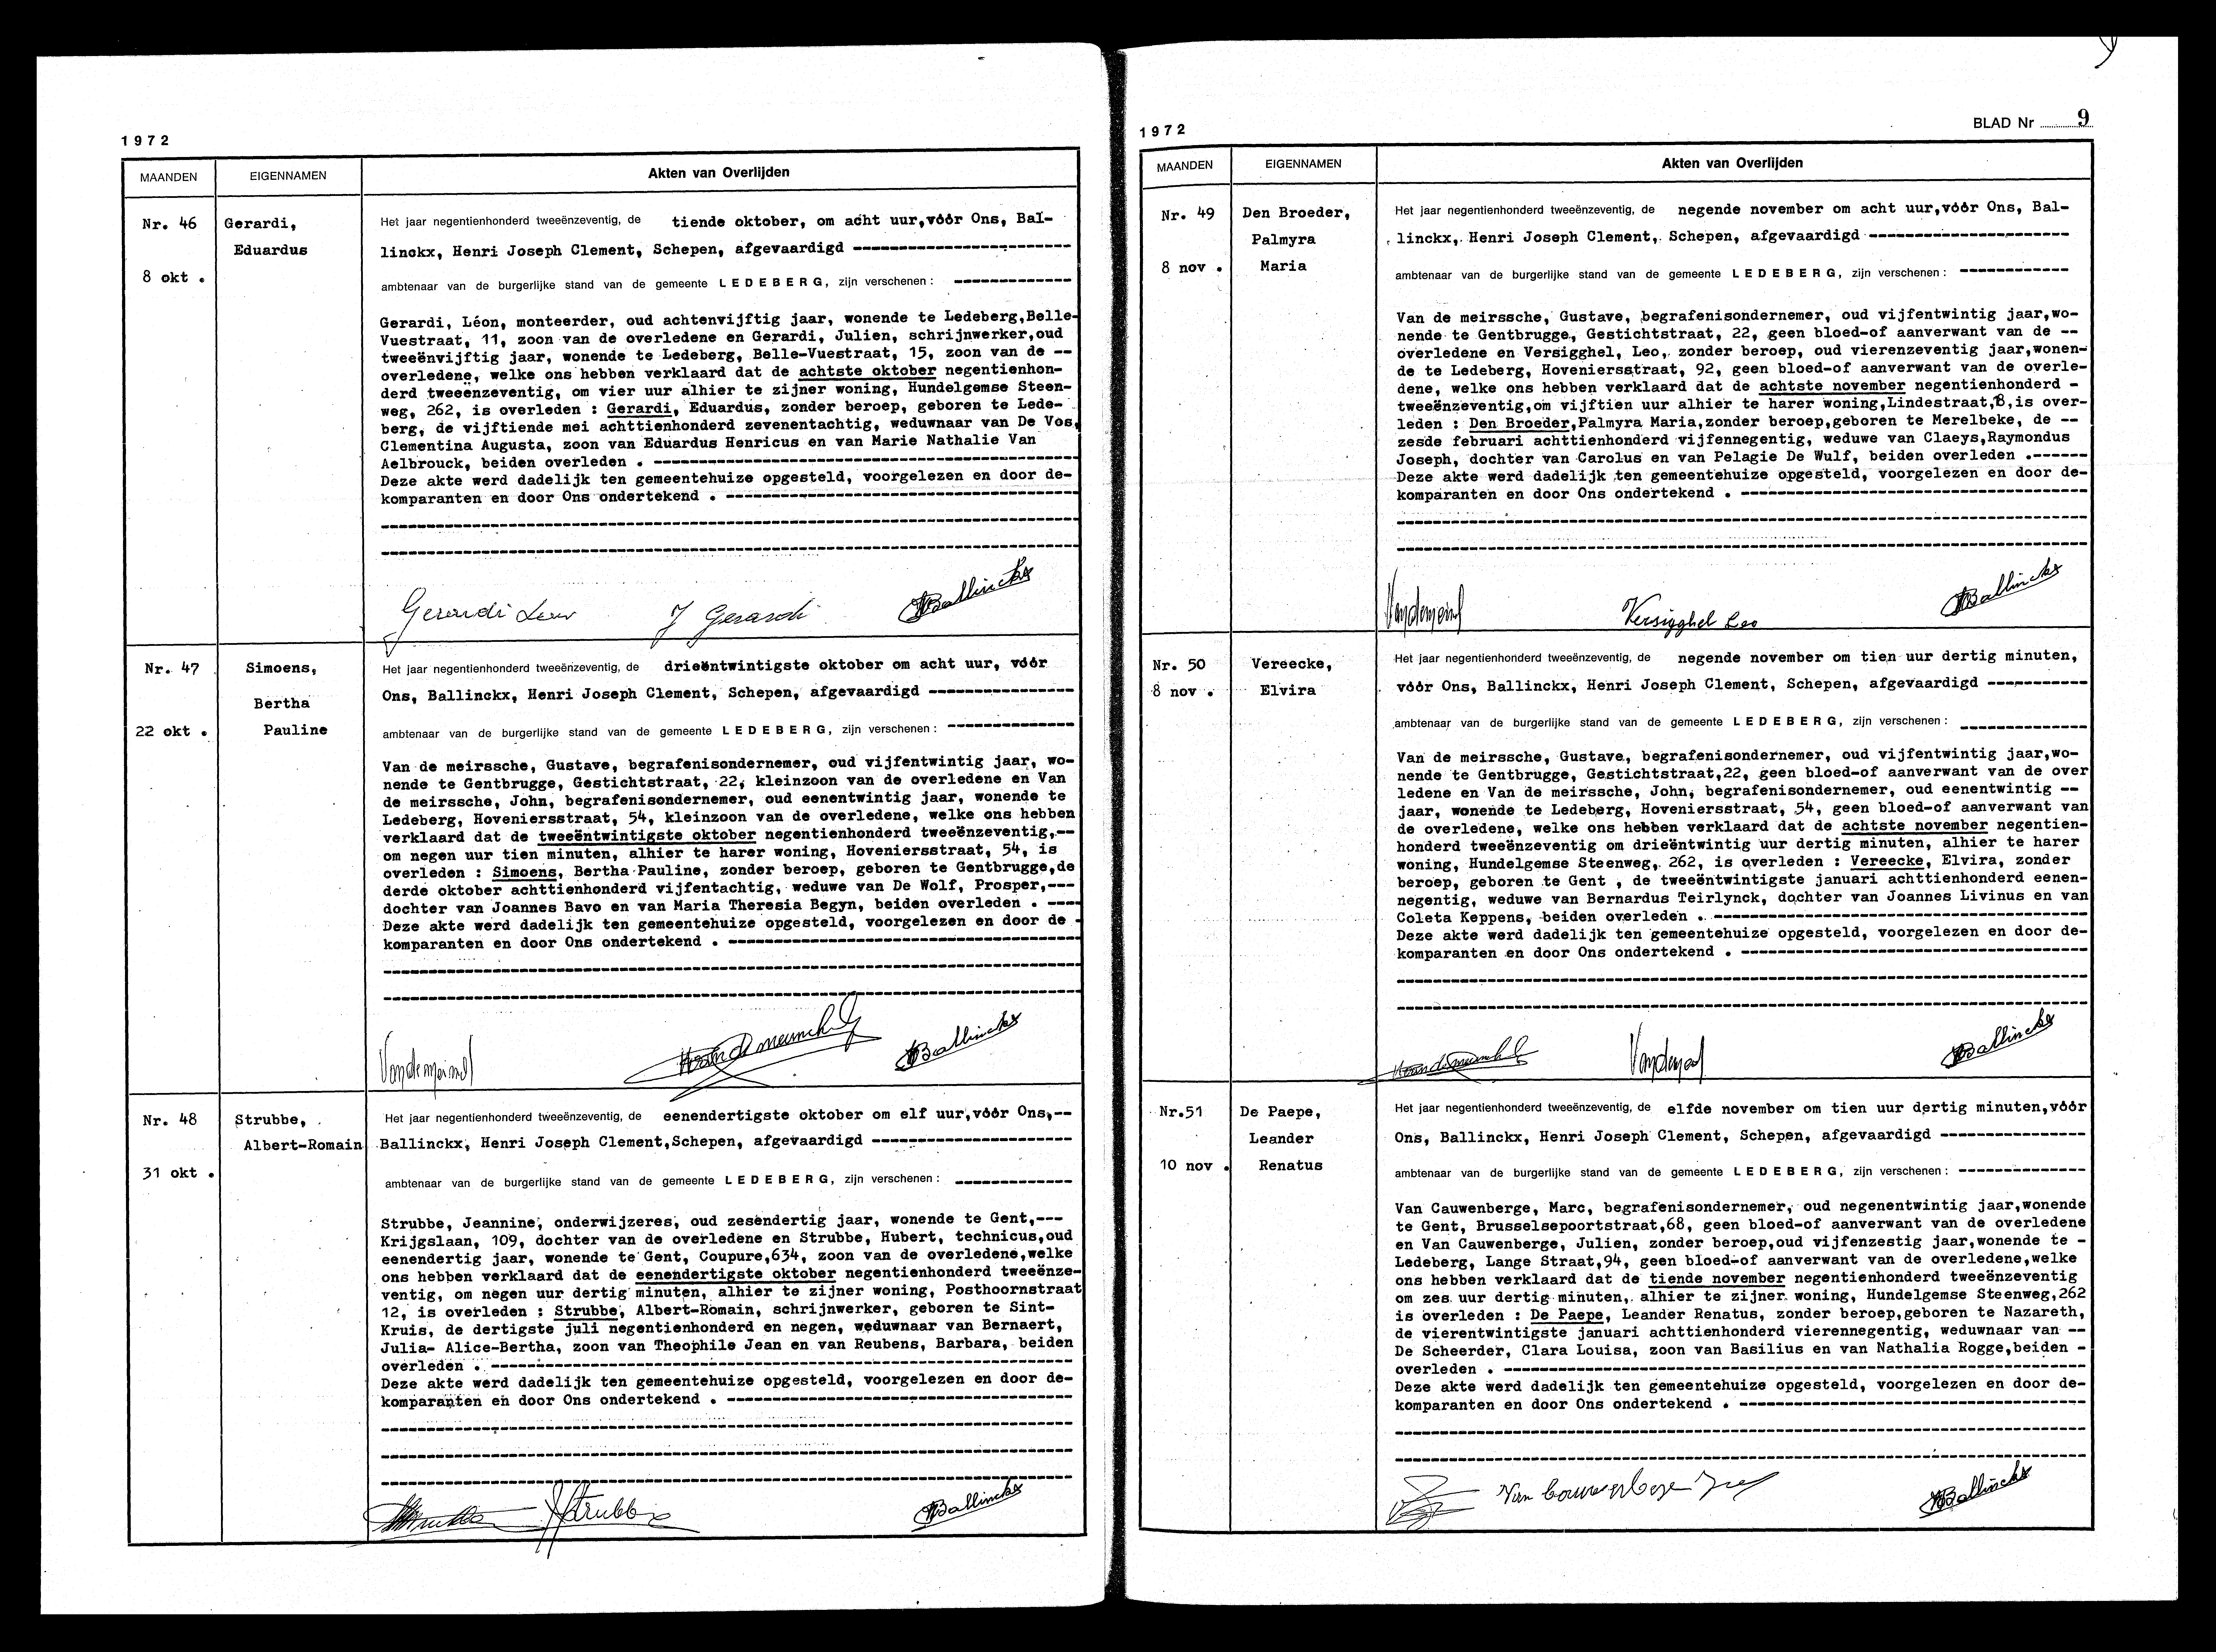 1972
MAANDEN
EIGENNAMEN
Akten van Overlijden
Nr. 46
8 okt .
Gerardi,
Eduardus
Het jaar negentienhonderd tweeënzeventig, de tiende oktober, om acht uur,vóór Ons, Bal-
linckx, Henri Joseph Clement, Schepen, afgevaardigd
ambtenaar van de burgerlijke stand van de gemeente LEDEBERG, zijn verschenen :
Gerardi, Léon, monteerder, oud achtenvijftig jaar, wonende te Ledeberg,Belle-
Vuestraat, 11, zoon van de overledene en Gerardi, Julien, schrijnwerker,oud
tweeënvijftig jaar, wonende te Ledeberg, Belle-Vuestraat, 15, zoon van de --
overledene, welke ons hebben verklaard dat de achtste oktober negentienhon-
derd tweeënzeventig, om vier uur alhier te zijner woning, Hundelgemse Steen-
weg, 262, is overleden : Gerardi, Eduardus, zonder beroep, geboren te Lede-
berg, de vijftiende mei achttienhonderd zevenentachtig, weduwnaar van De Vos,
Clementina Augusta, zoon van Eduardus Henricus en van Marie Nathalie Van
Aelbrouck, beiden overleden .
Deze akte werd dadelijk ten gemeentehuize opgesteld, voorgelezen en door de-
komparanten en door Ons ondertekend .
Gerardi Leon J Gerardi HBallinckx
Nr. 47
22 okt .
Simoens,
Bertha
Pauline
Het jaar negentienhonderd tweeënzeventig, de drieëntwintigste oktober om acht uur, vóór
Ons, Ballinckx, Henri Joseph Clement, Schepen, afgevaardigd
ambtenaar van de burgerlijke stand van de gemeente LEDEBERG, zijn verschenen :
Van de meirssche, Gustave, begrafenisondernemer, oud vijfentwintig jaar, wo-
nende te Gentbrugge, Gestichtstraat, 22, kleinzoon van de overledene en Van
de meirssche, John, begrafenisondernemer, oud eenentwintig jaar, wonende te
Ledeberg, Hoveniersstraat, 54, kleinzoon van de overledene, welke ons hebben
verklaard dat de tweeëntwintigste oktober negentienhonderd tweeënzeventig,--
om negen uur tien minuten, alhier te harer woning, Hoveniersstraat, 54, is
overleden : Simoens, Bertha Pauline, zonder beroep, geboren te Gentbrugge,de
derde oktober achttienhonderd vijfentachtig, weduwe van De Wolf, Prosper,---
dochter van Joannes Bavo en van Maria Theresia Begyn, beiden overleden . ----
Deze akte werd dadelijk ten gemeentehuize opgesteld, voorgelezen en door de -
komparanten en door Ons ondertekend .
HBallinckx
Nr. 48
31 okt .
Strubbe,
Albert-Romain
Het jaar negentienhonderd tweeënzeventig, de eenendertigste oktober om elf uur,vóór Ons,--
Ballinckx, Henri Joseph Clement,Schepen, afgevaardigd
ambtenaar van de burgerlijke stand van de gemeente LEDEBERG, zijn verschenen :
Strubbe, Jeannine, onderwijzeres, oud zesendertig jaar, wonende te Gent,---
Krijgslaan, 109, dochter van de overledene en Strubbe, Hubert, technicus,oud
eenendertig jaar, wonende te Gent, Coupure,634, zoon van de overledene,welke
ons hebben verklaard dat de eenendertigste oktober negentienhonderd tweeënze-
ventig, om negen uur dertig minuten, alhier te zijner woning, Posthoornstraat
12, is overleden : Strubbe, Albert-Romain, schrijnwerker, geboren te Sint-
Kruis, de dertigste juli negentienhonderd en negen, weduwnaar van Bernaert,
Julia- Alice-Bertha, zoon van Theophile Jean en van Reubens, Barbara, beiden
overleden .
Deze akte werd dadelijk ten gemeentehuize opgesteld, voorgelezen en door de-
komparanten en door Ons ondertekend .
HStrubbe HBallinckx
1972
BLAD Nr 9
MAANDEN
EIGENNAMEN
Akten van Overlijden
Nr. 49
8 nov .
Den Broeder,
Palmyra
Maria
Het jaar negentienhonderd tweeënzeventig, de negende november om acht uur,vóór Ons, Bal-
linckx, Henri Joseph Clement, Schepen, afgevaardigd
ambtenaar van de burgerlijke stand van de gemeente LEDEBERG, zijn verschenen :
Van de meirssche, Gustave, begrafenisondernemer, oud vijfentwintig jaar,wo-
nende te Gentbrugge, Gestichtstraat, 22, geen bloed-of aanverwant van de --
overledene en Versigghel, Leo, zonder beroep, oud vierenzeventig jaar,wonen-
de te Ledeberg, Hoveniersstraat, 92, geen bloed-of aanverwant van de overle-
dene, welke ons hebben verklaard dat de achtste november negentienhonderd -
tweeënzeventig,om vijftien uur alhier te harer woning,Lindestraat,8,is over-
leden : Den Broeder,Palmyra Maria,zonder beroep,geboren te Merelbeke, de --
zesde februari achttienhonderd vijfennegentig, weduwe van Claeys,Raymondus
Joseph, dochter van Carolus en van Pelagie De Wulf, beiden overleden .------
Deze akte werd dadelijk ten gemeentehuize opgesteld, voorgelezen en door de-
komparanten en door Ons ondertekend .
Versigghel Leo HBallinckx
Nr. 50
8 nov .
Vereecke,
Elvira
Het jaar negentienhonderd tweeënzeventig, de negende november om tien uur dertig minuten,
vóór Ons, Ballinckx, Henri Joseph Clement, Schepen, afgevaardigd
ambtenaar van de burgerlijke stand van de gemeente LEDEBERG, zijn verschenen :
Van de meirssche, Gustave, begrafenisondernemer, oud vijfentwintig jaar,wo-
nende te Gentbrugge, Gestichtstraat,22, geen bloed-of aanverwant van de over
ledene en Van de meirssche, John, begrafenisondernemer, oud eenentwintig --
jaar, wonende te Ledeberg, Hoveniersstraat, 54, geen bloed-of aanverwant van
de overledene, welke ons hebben verklaard dat de achtste november negentien-
honderd tweeënzeventig om drieëntwintig uur dertig minuten, alhier te harer
woning, Hundelgemse Steenweg, 262, is overleden : Vereecke, Elvira, zonder
beroep, geboren te Gent , de tweeëntwintigste januari achttienhonderd eenen-
negentig, weduwe van Bernardus Teirlynck, dochter van Joannes Livinus en van
Coleta Keppens, beiden overleden .
Deze akte werd dadelijk ten gemeentehuize opgesteld, voorgelezen en door de-
komparanten en door Ons ondertekend .
HBallinckx
Nr.51
10 nov .
De Paepe,
Leander
Renatus
Het jaar negentienhonderd tweeënzeventig, de elfde november om tien uur dertig minuten,vóór
Ons, Ballinckx, Henri Joseph Clement, Schepen, afgevaardigd
ambtenaar van de burgerlijke stand van de gemeente LEDEBERG, zijn verschenen :
Van Cauwenberge, Marc, begrafenisondernemer, oud negenentwintig jaar,wonende
te Gent, Brusselsepoortstraat,68, geen bloed-of aanverwant van de overledene
en Van Cauwenberge, Julien, zonder beroep,oud vijfenzestig jaar,wonende te -
Ledeberg, Lange Straat,94, geen bloed-of aanverwant van de overledene,welke
ons hebben verklaard dat de tiende november negentienhonderd tweeënzeventig
om zes uur dertig minuten, alhier te zijner woning, Hundelgemse Steenweg,262
is overleden : De Paepe, Leander Renatus, zonder beroep,geboren te Nazareth,
de vierentwintigste januari achttienhonderd vierennegentig, weduwnaar van --
De Scheerder, Clara Louisa, zoon van Basilius en van Nathalia Rogge,beiden -
overleden .
Deze akte werd dadelijk ten gemeentehuize opgesteld, voorgelezen en door de-
komparanten en door Ons ondertekend .
HBallinckx